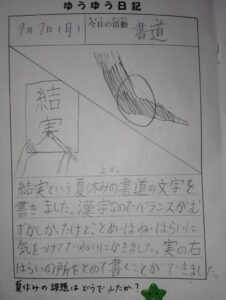 ゆうゆう日記
7月7日(月) 今日の活動 書道
結実
結実という夏休みの書道の文字を
書きました。漢字なのでバランスがむ
ずかしかったけど、とめ・はね・はらいに
気をつけてていねいにかきました。実の右
はらいの所をとめて書くことができました。
夏休みの課題はどうでしたか?